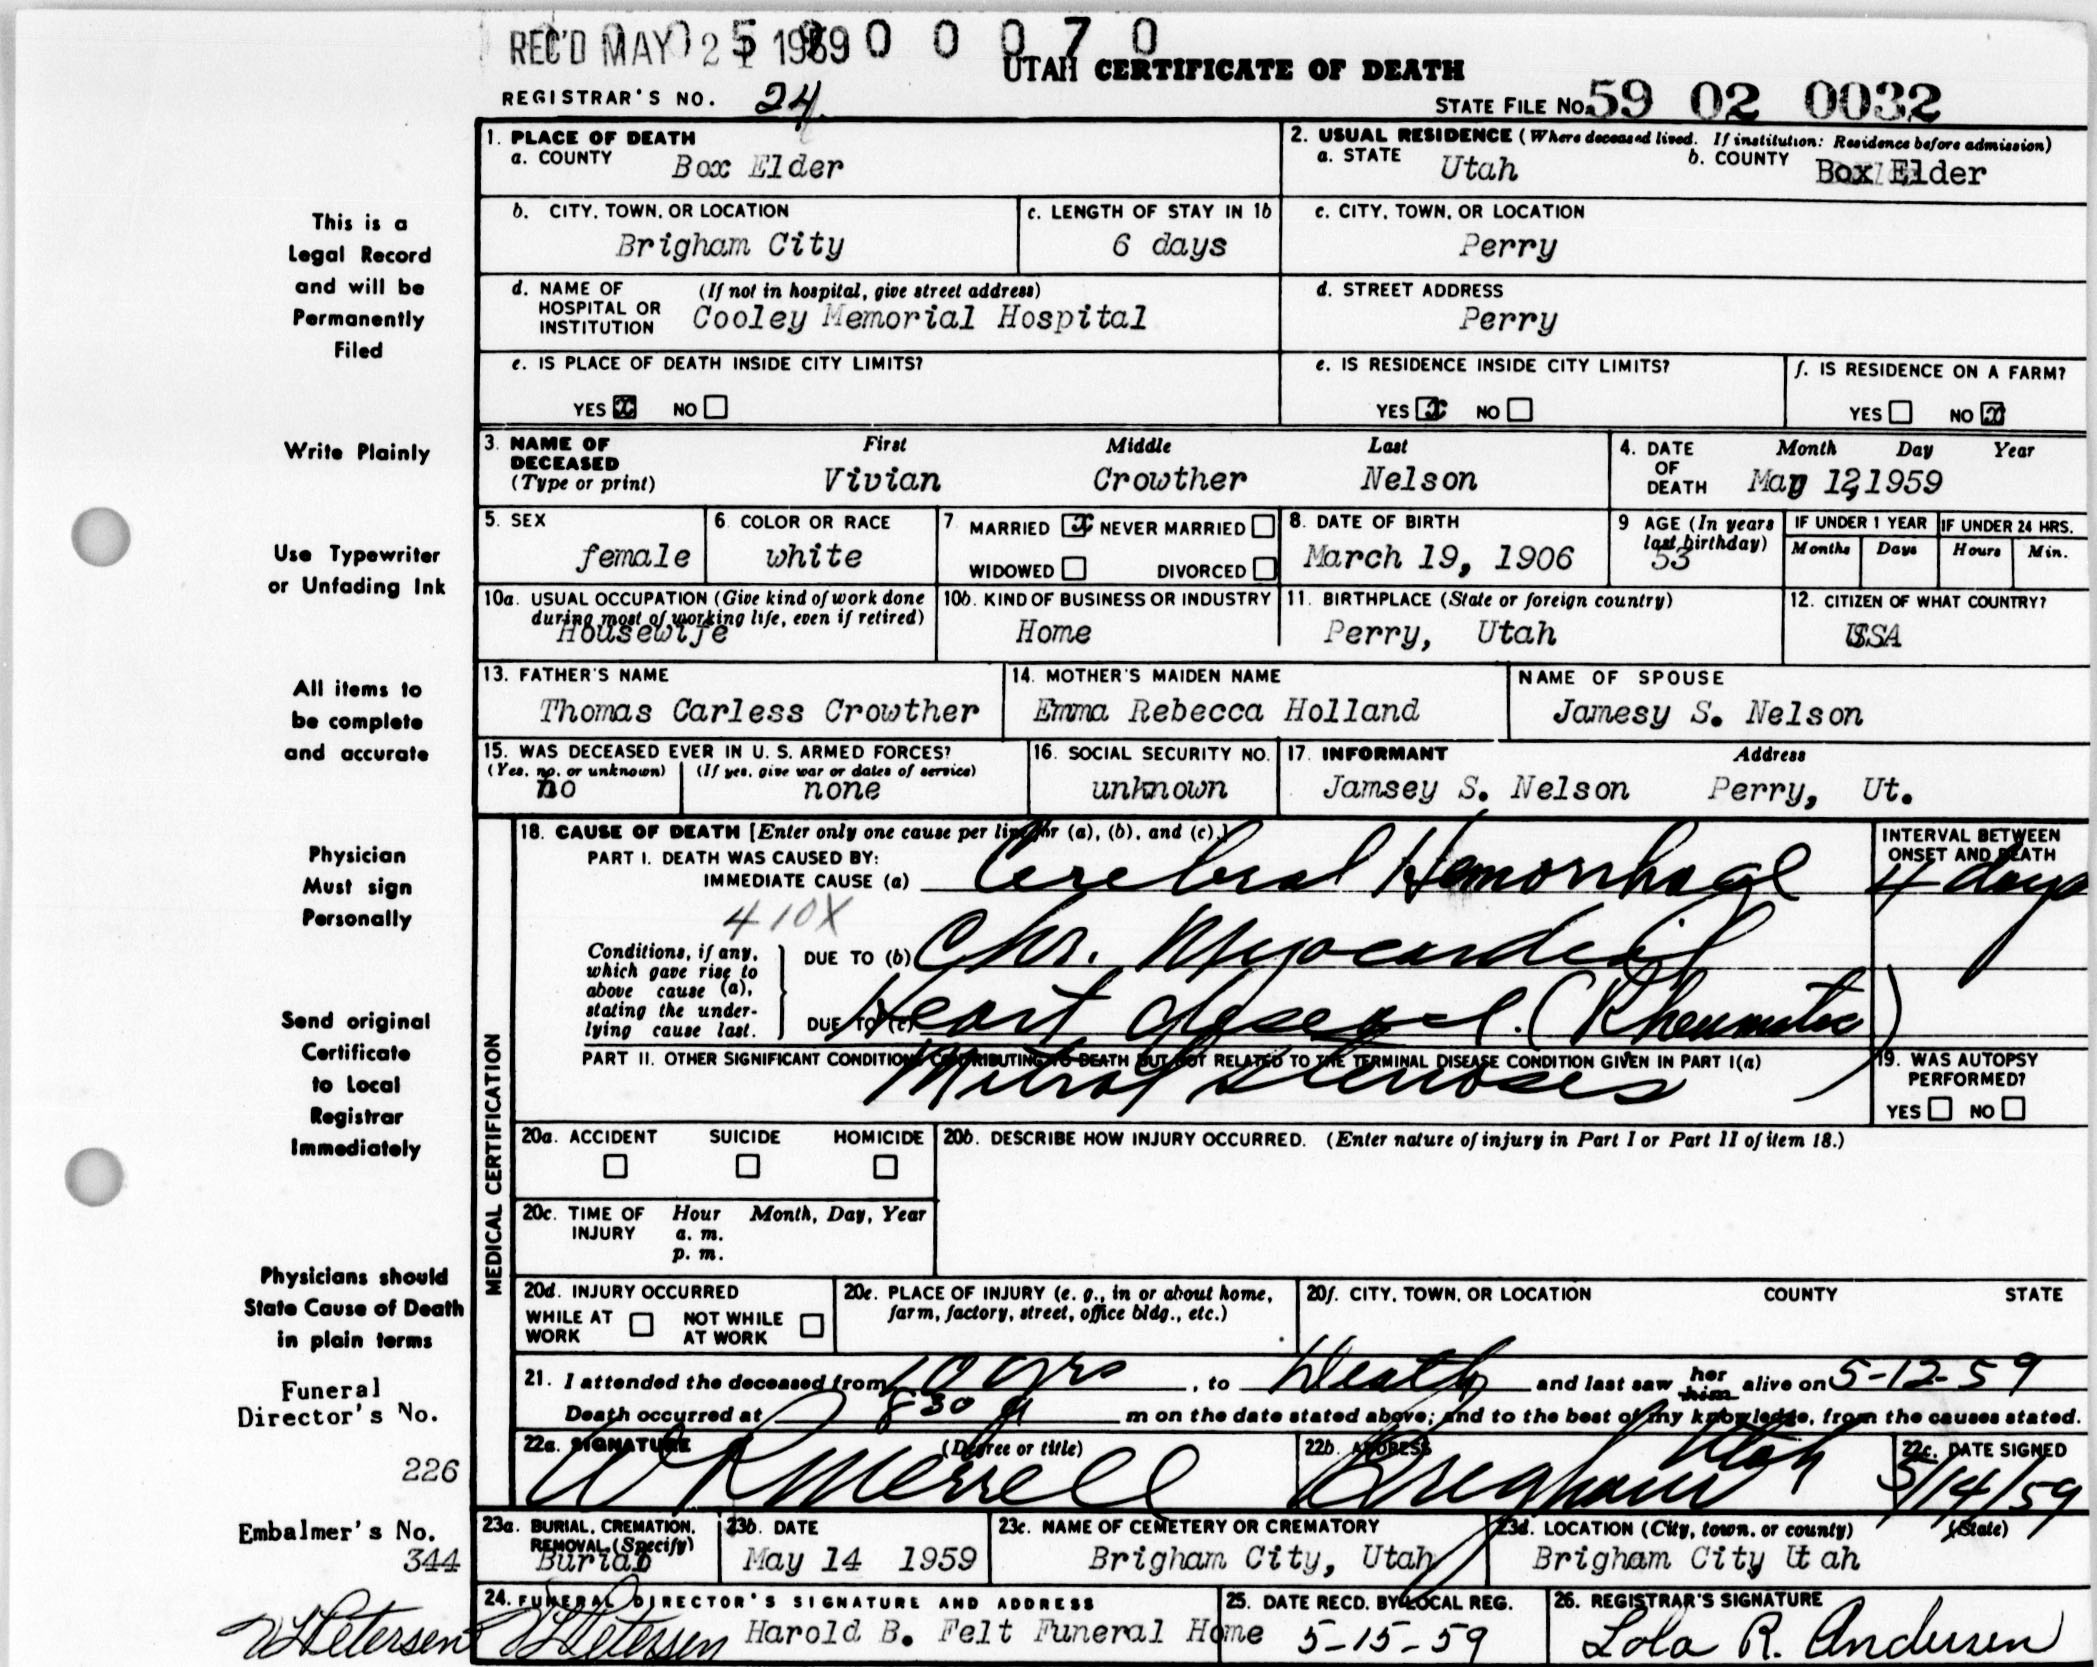 REC'D MAY 25 1959 0 0 0 7 0
UTAH CERTIFICATE OF DEATH
REGISTRAR'S NO. 24
STATE FILE No. 59 02 0032
1. PLACE OF DEATH
a. COUNTY Box Elder
2. USUAL RESIDENCE (Where deceased lived. If institution: Residence before admission)
a. STATE Utah b. COUNTY Box Elder
b. CITY, TOWN, OR LOCATION
Brigham City
c. LENGTH OF STAY IN 1b
6 days
c. CITY, TOWN, OR LOCATION
Perry
d. NAME OF HOSPITAL OR INSTITUTION (If not in hospital, give street address)
Cooley Memorial Hospital
d. STREET ADDRESS
Perry
e. IS PLACE OF DEATH INSIDE CITY LIMITS?
YES x NO
e. IS RESIDENCE INSIDE CITY LIMITS?
YES x NO
f. IS RESIDENCE ON A FARM?
YES NO x
3. NAME OF DECEASED (Type or print)
First Middle Last
Vivian Crowther Nelson
4. DATE OF DEATH Month Day Year
May 12, 1959
5. SEX
female
6. COLOR OR RACE
white
7. MARRIED x NEVER MARRIED
WIDOWED DIVORCED
8. DATE OF BIRTH
March 19, 1906
9. AGE (In years last birthday)
53
IF UNDER 1 YEAR
Months Days
IF UNDER 24 HRS.
Hours Min.
10a. USUAL OCCUPATION (Give kind of work done during most of working life, even if retired)
Housewife
10b. KIND OF BUSINESS OR INDUSTRY
Home
11. BIRTHPLACE (State or foreign country)
Perry, Utah
12. CITIZEN OF WHAT COUNTRY?
USA
13. FATHER'S NAME
Thomas Carless Crowther
14. MOTHER'S MAIDEN NAME
Emma Rebecca Holland
NAME OF SPOUSE
Jamesy S. Nelson
15. WAS DECEASED EVER IN U. S. ARMED FORCES?
(Yes, no, or unknown) (If yes, give war or dates of service)
no none
16. SOCIAL SECURITY NO.
unknown
17. INFORMANT Address
Jamsey S. Nelson Perry, Ut.
18. CAUSE OF DEATH [Enter only one cause per line for (a), (b), and (c).]
PART I. DEATH WAS CAUSED BY:
IMMEDIATE CAUSE (a) Cerebral Hemorrhage
INTERVAL BETWEEN ONSET AND DEATH
4 days
410X
Conditions, if any, which gave rise to above cause (a), stating the underlying cause last.
DUE TO (b) Chr. Myocardial
DUE TO (c) Heart disease. (Rheumatic)
PART II. OTHER SIGNIFICANT CONDITIONS CONTRIBUTING TO DEATH BUT NOT RELATED TO THE TERMINAL DISEASE CONDITION GIVEN IN PART I(a)
Mitral Stenosis
19. WAS AUTOPSY PERFORMED?
YES NO
MEDICAL CERTIFICATION
20a. ACCIDENT SUICIDE HOMICIDE
20b. DESCRIBE HOW INJURY OCCURRED. (Enter nature of injury in Part I or Part II of item 18.)
20c. TIME OF INJURY Hour Month, Day, Year
a. m.
p. m.
20d. INJURY OCCURRED
WHILE AT WORK NOT WHILE AT WORK
20e. PLACE OF INJURY (e. g., in or about home, farm, factory, street, office bldg., etc.)
20f. CITY, TOWN, OR LOCATION COUNTY STATE
21. I attended the deceased from 10 yrs, to Death and last saw her him alive on 5-12-59
Death occurred at 830 a m on the date stated above; and to the best of my knowledge, from the causes stated.
22a. SIGNATURE (Degree or title)
W R Merrell
22b. ADDRESS
Brigham Utah
22c. DATE SIGNED
5/14/59
23a. BURIAL, CREMATION, REMOVAL (Specify)
Burial
23b. DATE
May 14 1959
23c. NAME OF CEMETERY OR CREMATORY
Brigham City, Utah
23d. LOCATION (City, town, or county) (State)
Brigham City Utah
24. FUNERAL DIRECTOR'S SIGNATURE AND ADDRESS
Petersen Harold B. Felt Funeral Home
25. DATE RECD. BY LOCAL REG.
5-15-59
26. REGISTRAR'S SIGNATURE
Lola R. Andersen
This is a
Legal Record
and will be
Permanently
Filed
Write Plainly
Use Typewriter
or Unfading Ink
All items to
be complete
and accurate
Physician
Must sign
Personally
Send original
Certificate
to Local
Registrar
Immediately
Physicians should
State Cause of Death
in plain terms
Funeral
Director's No.
226
Embalmer's No.
344
Petersen